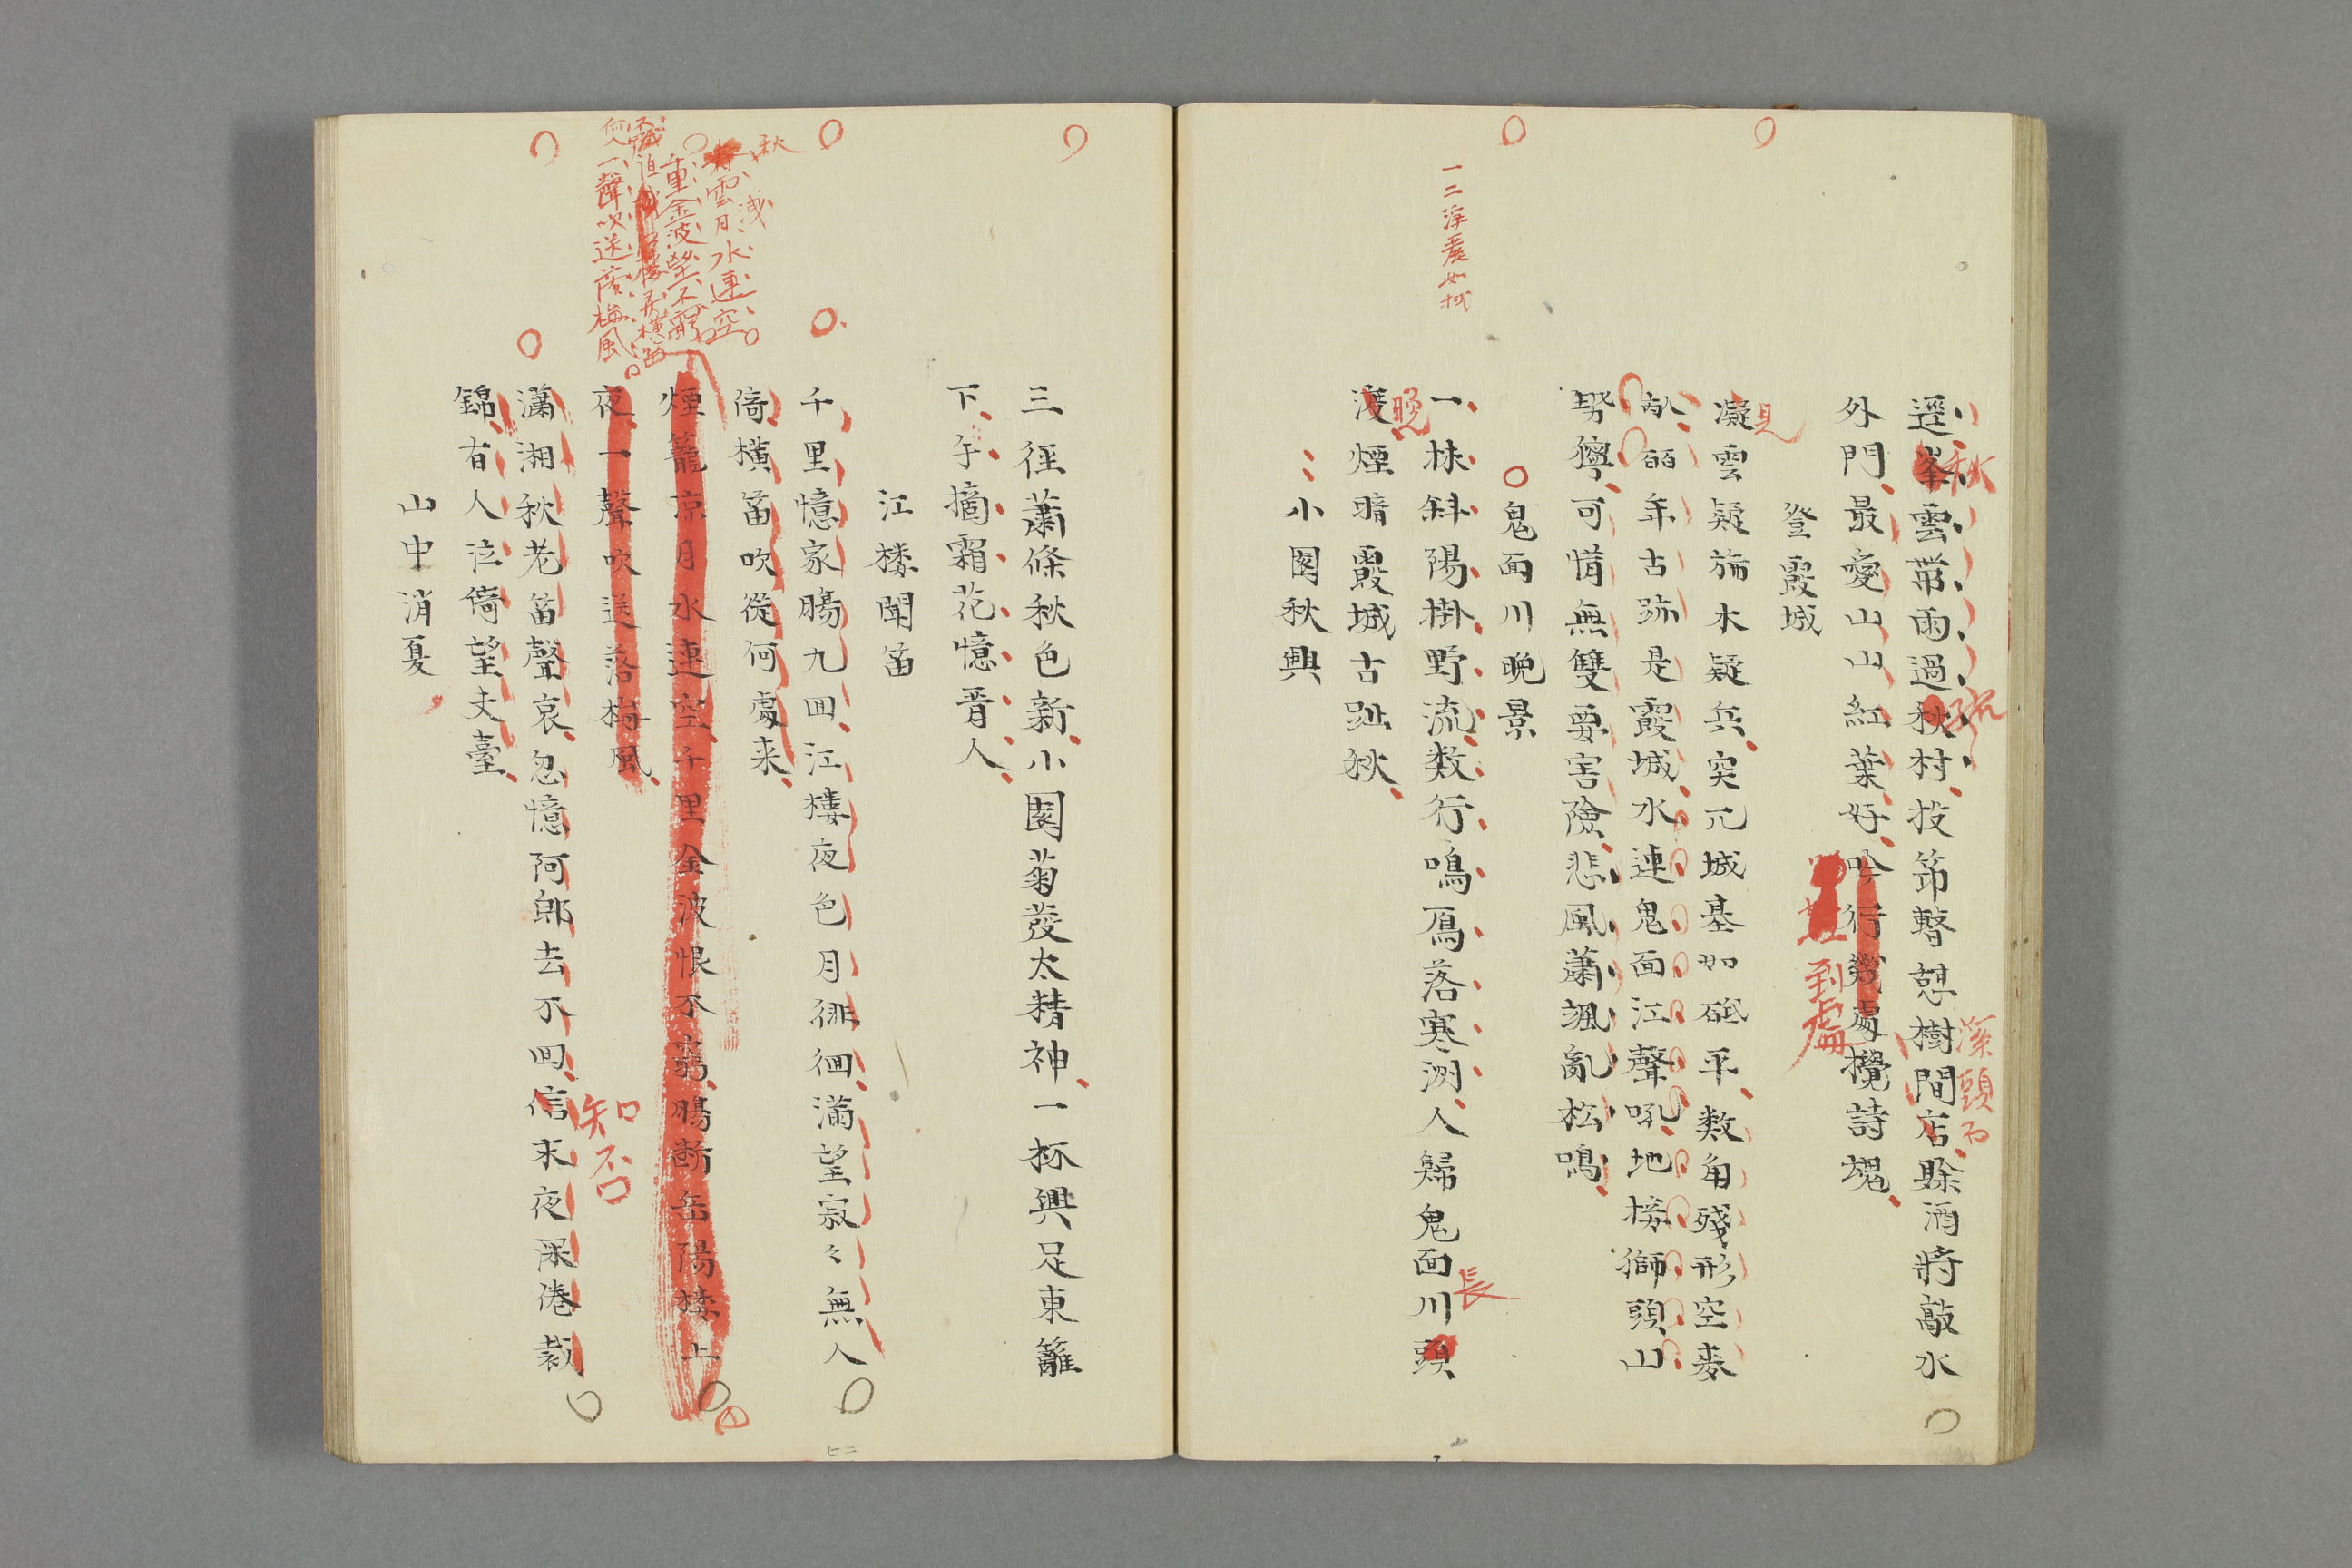 逕峯雲帶雨過秋村投笻暫憩樹間店賖酒將敲水
秋
疏
溪頭而
外門最愛山山紅葉好吟行幾處攪詩魂
到處
登霞城
見
凝雲疑旆木疑兵突兀城基如砥平数角殘形空麥
畝百年古跡是霞城水連鬼面江聲吼地接獅頭山
勢獰可惜無雙要害險悲風蕭颯亂松鳴
鬼面川晩景
一二淳農如拭
一抹斜陽掛野流数行鳴鴈落寒洲人歸鬼面川頭
長
晩
渡煙暗霞城古趾秋
小園秋興
三徑蕭條秋色新小園菊發太精神一杯興足東籬
下乍摘霜花憶晋人
江楼聞笛
千里憶家腸九回江樓夜色月徘徊滿望寂々無人
倚横笛吹從何處来
秋
雲月水連空
浅
千里金波望不窮
一聲吹送落梅風
煙籠凉月水連空千里金波恨不窮腸断岳陽楼上
夜一聲吹送落梅風
知否
瀟湘秋老笛聲哀忽憶阿郎去不回信未夜深倦裁
錦有人泣倚望夫臺
山中消夏